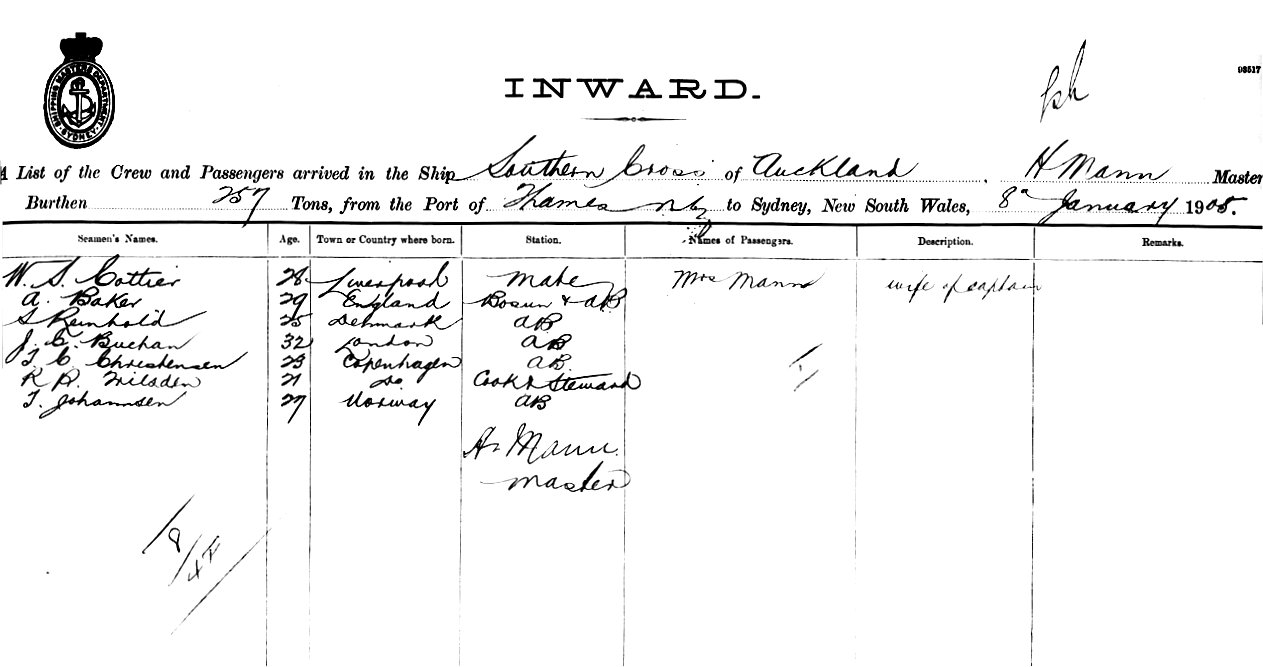 SHIPPING MASTERS DEPARTMENT. SYDNEY
98517
INWARD.
A List of the Crew and Passengers arrived in the Ship Southern Cross of Auckland. H Mann Master
Burthen 257 Tons, from the Port of Thames NZ to Sydney, New South Wales, 8th January 1905.
Seamen's Names. Age. Town or Country where born. Station. Names of Passengers. Description. Remarks.
W. S. Cottier 28 Liverpool Mate Mrs Mann wife of captain
A. Baker 29 England Bosun & AB
S Reinhold 25 Denmark AB
J. C. Buchan 32 London AB
T. C. Christensen 23 Copenhagen AB
R R. 21 Do Cook & Steward
T. Johannsen 27 Norway AB
H Mann
master